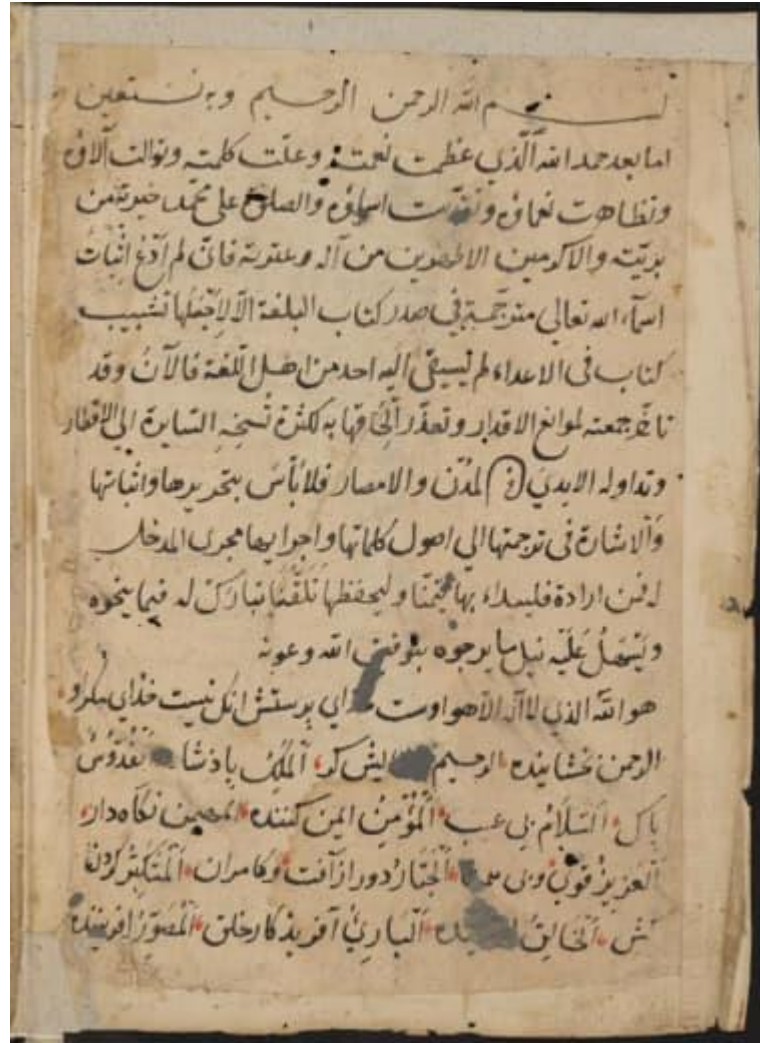 بسم الله الرحمن الرحيم وبه نستعين
اما بعد حمد الله الذي عظمت نعمته وعلت كلمته وتوالت آلاؤه
وتظاهرت نعماؤه وتقدست اسماؤه والصلوة على محمد خيرته من
بريته والاكرمين الاطهرين من آله وعترته فانى لم ادع اثبات
اسماء الله تعالى مترجمة في صدر كتاب البلغة الا لاجعلها تشبيب
كتاب فى الاعداء لم يسبقنى اليه احد من اهل اللغة فالآن وقد
تاخر جمعته لموانع الاقدار وتعذر الحاقها به لكثرة نسخه السايرة الى الاقطار
وتداوله الايدي في المدن والامصار فلا بأس بتحريرها واثباتها
والاشارة فى ترجمتها الى اصول كلماتها واجرايها مجرى المدخل
له فمن اراده فليبداء بها تيمنا وليحفظها تلقنا تبارك له فيما ينحوه
ويتسهل عليه نيل ما يرجوه بتوفيق الله وعونه
هو الله الذي لا اله الا هو اوست خداي پرستش انكل نيست خداي مكر او
الرحمن بخشاينده الرحيم كر الملك پادشا القدوس
پاك السلام بى عيب المؤمن ايمن كننده المهيمن نكاه دار
العزيز قوى وبى الجبار دور از آفت وكامران المتكبر كردن
كش الخالق البارئ آفريذكار خلق المصور افريننده